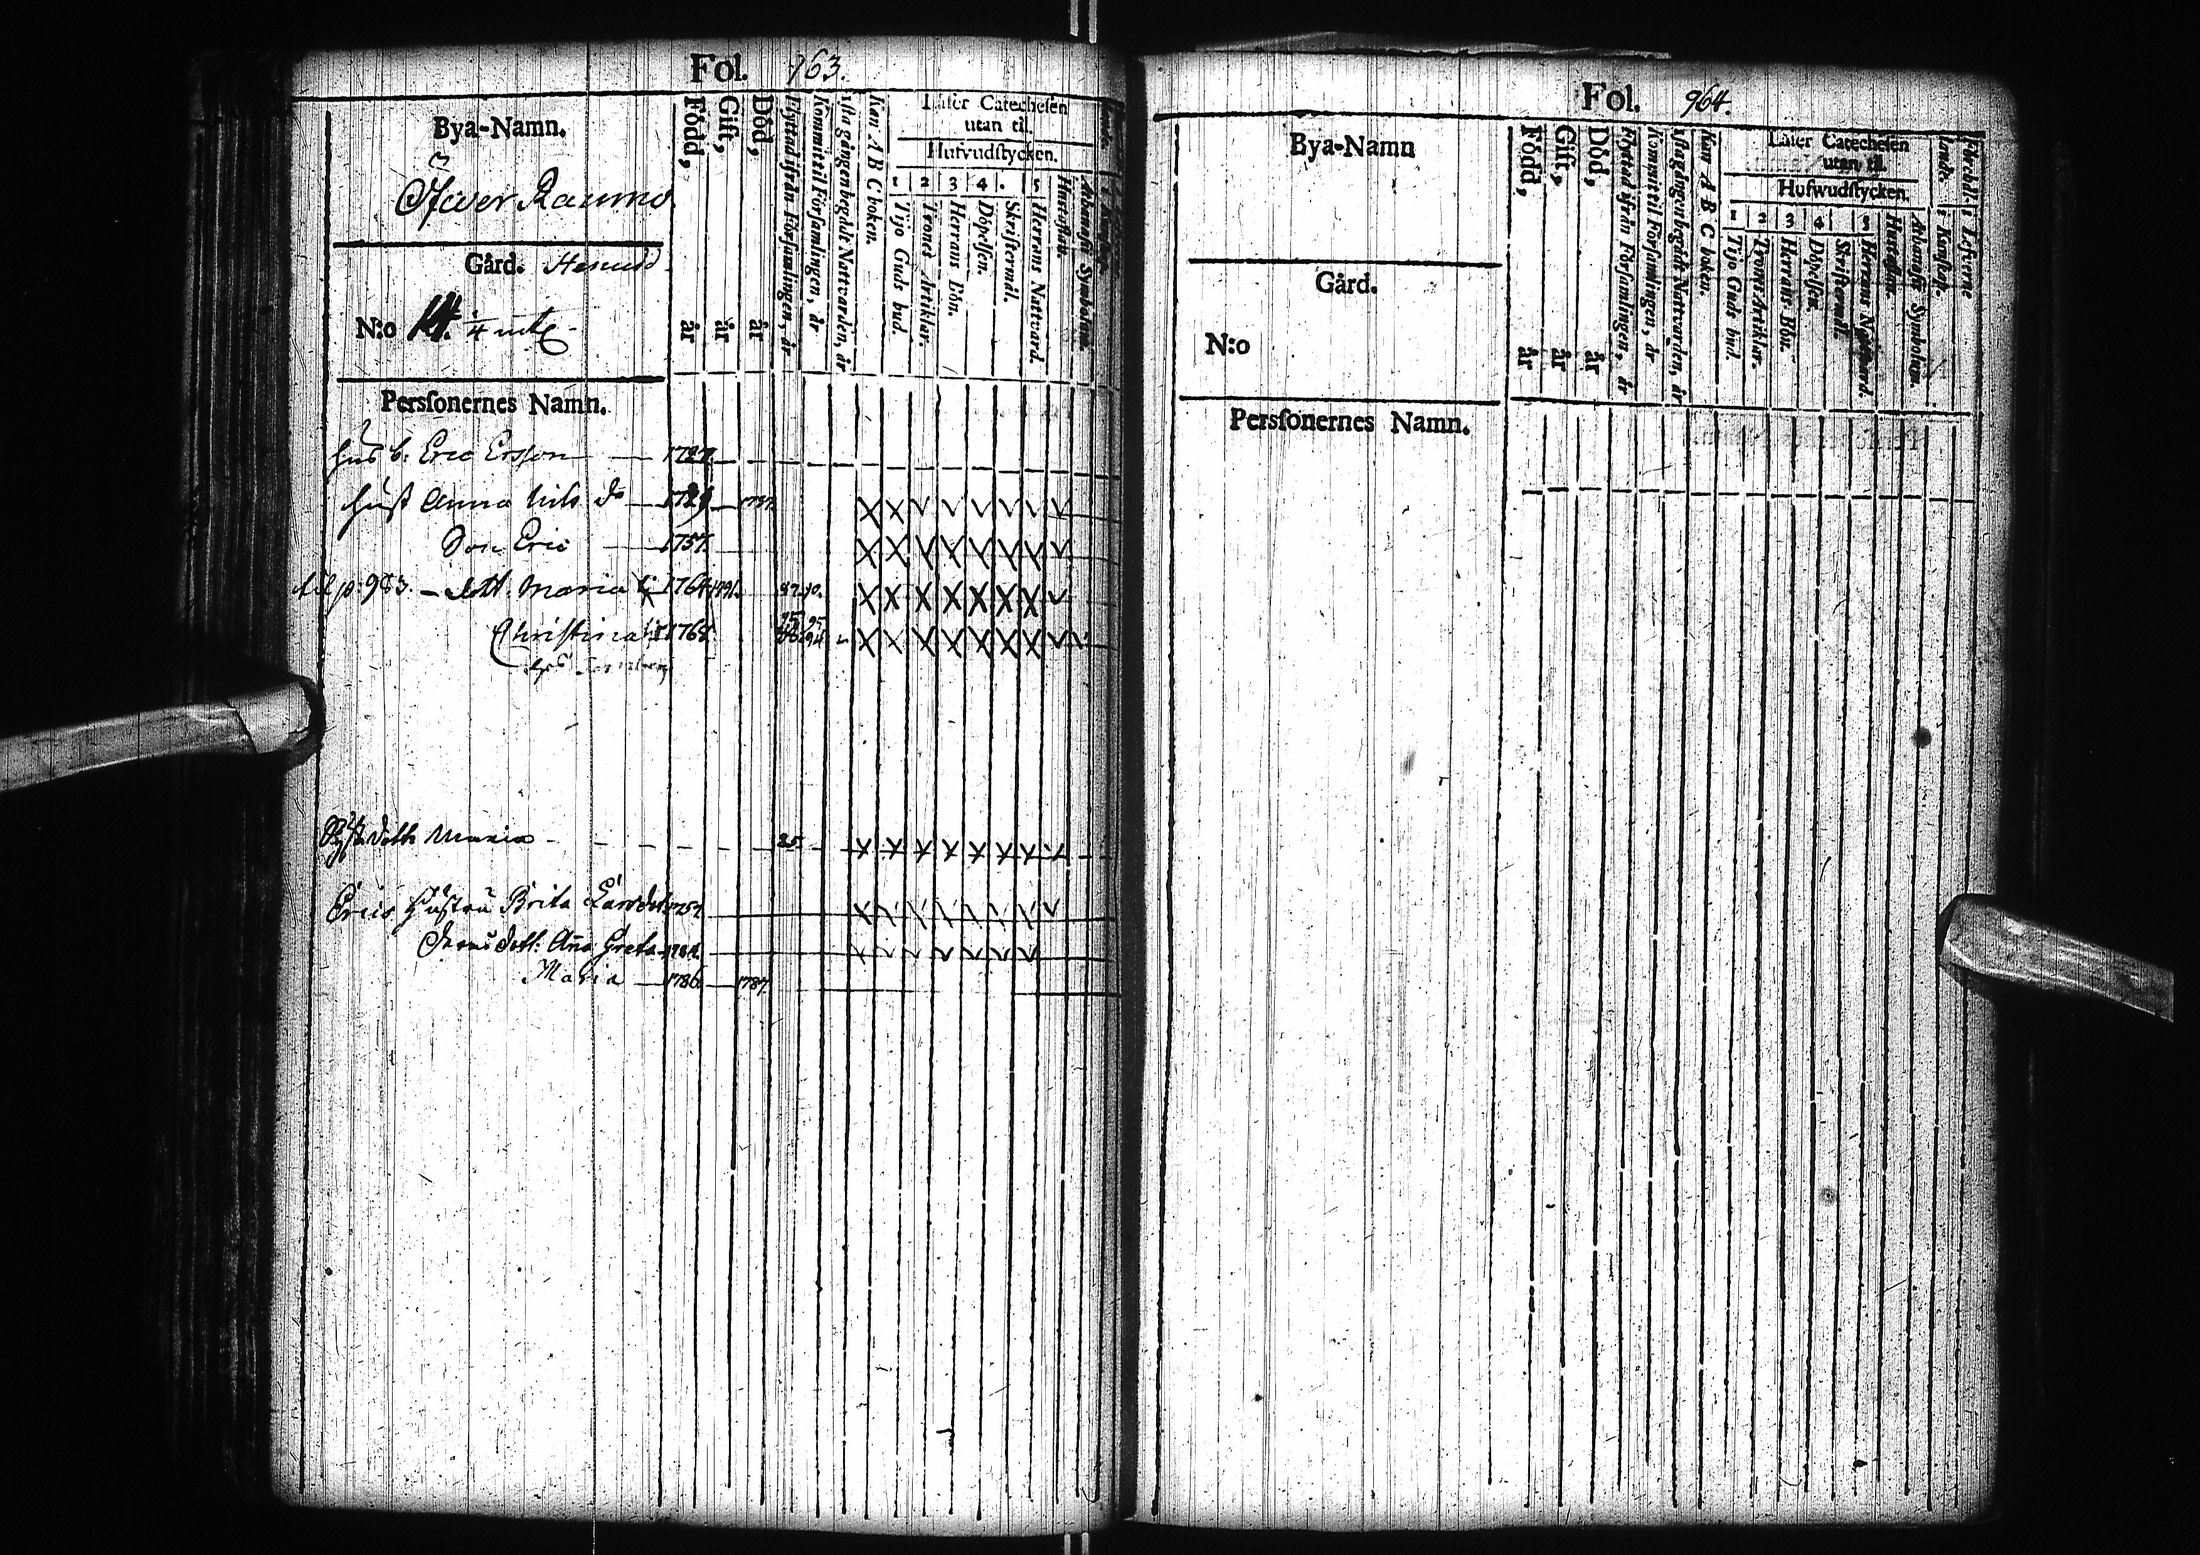 Fol. 963.
Bya-Namn.
Öfwer Raumo
Gård.
N:o 14. 1/4 mtl
Född, år
Gift, år
Död, år
Flyttad ifrån Församlingen, år
Kommit til Församlingen, år
1sta gången begådt Nattvarden, år
Kan A B C boken.
Läser Catechesen
utan til.
Hufvudstycken.
1 2 3 4. 5
Tijo Guds bud.
Trones Artiklar.
Herrans Bön.
Döpelsen.
Skriftermål.
Herrens Nattvard.
Hustaflan.
Athanasii Symbolum.
Perssonernes Namn.
Husb: Eric Ersson 1727.
Hust Anna Nils dr 1729 1797.
Son Eric 1757.
til p. 983. dott. Maria 1764 1791. 87. 90.
Christina 1768. 95
Dott Maria 85
Erics Hustru Brita Larsdot 1757.
Deras dott: Aña Greta 1784.
Maria 1786. 1787.
Fol. 964.
Bya-Namn
Gård.
N:o
Född, år
Gift, år
Död, år
Flyttad ifrån Församlingen, år
Kommit til Församlingen, år
1sta gången begådt Nattvarden, år
Kan A B C boken.
Läser Catechesen
utan til.
Hufwudstycken.
1 2 3 4 5
Tijo Guds bud.
Trones Artiklar.
Herrans Bön.
Döpelsen.
Skriftermål.
Herrans Nattvard.
Hustaflan.
Athanasii Symbolum.
Perssonernes Namn.